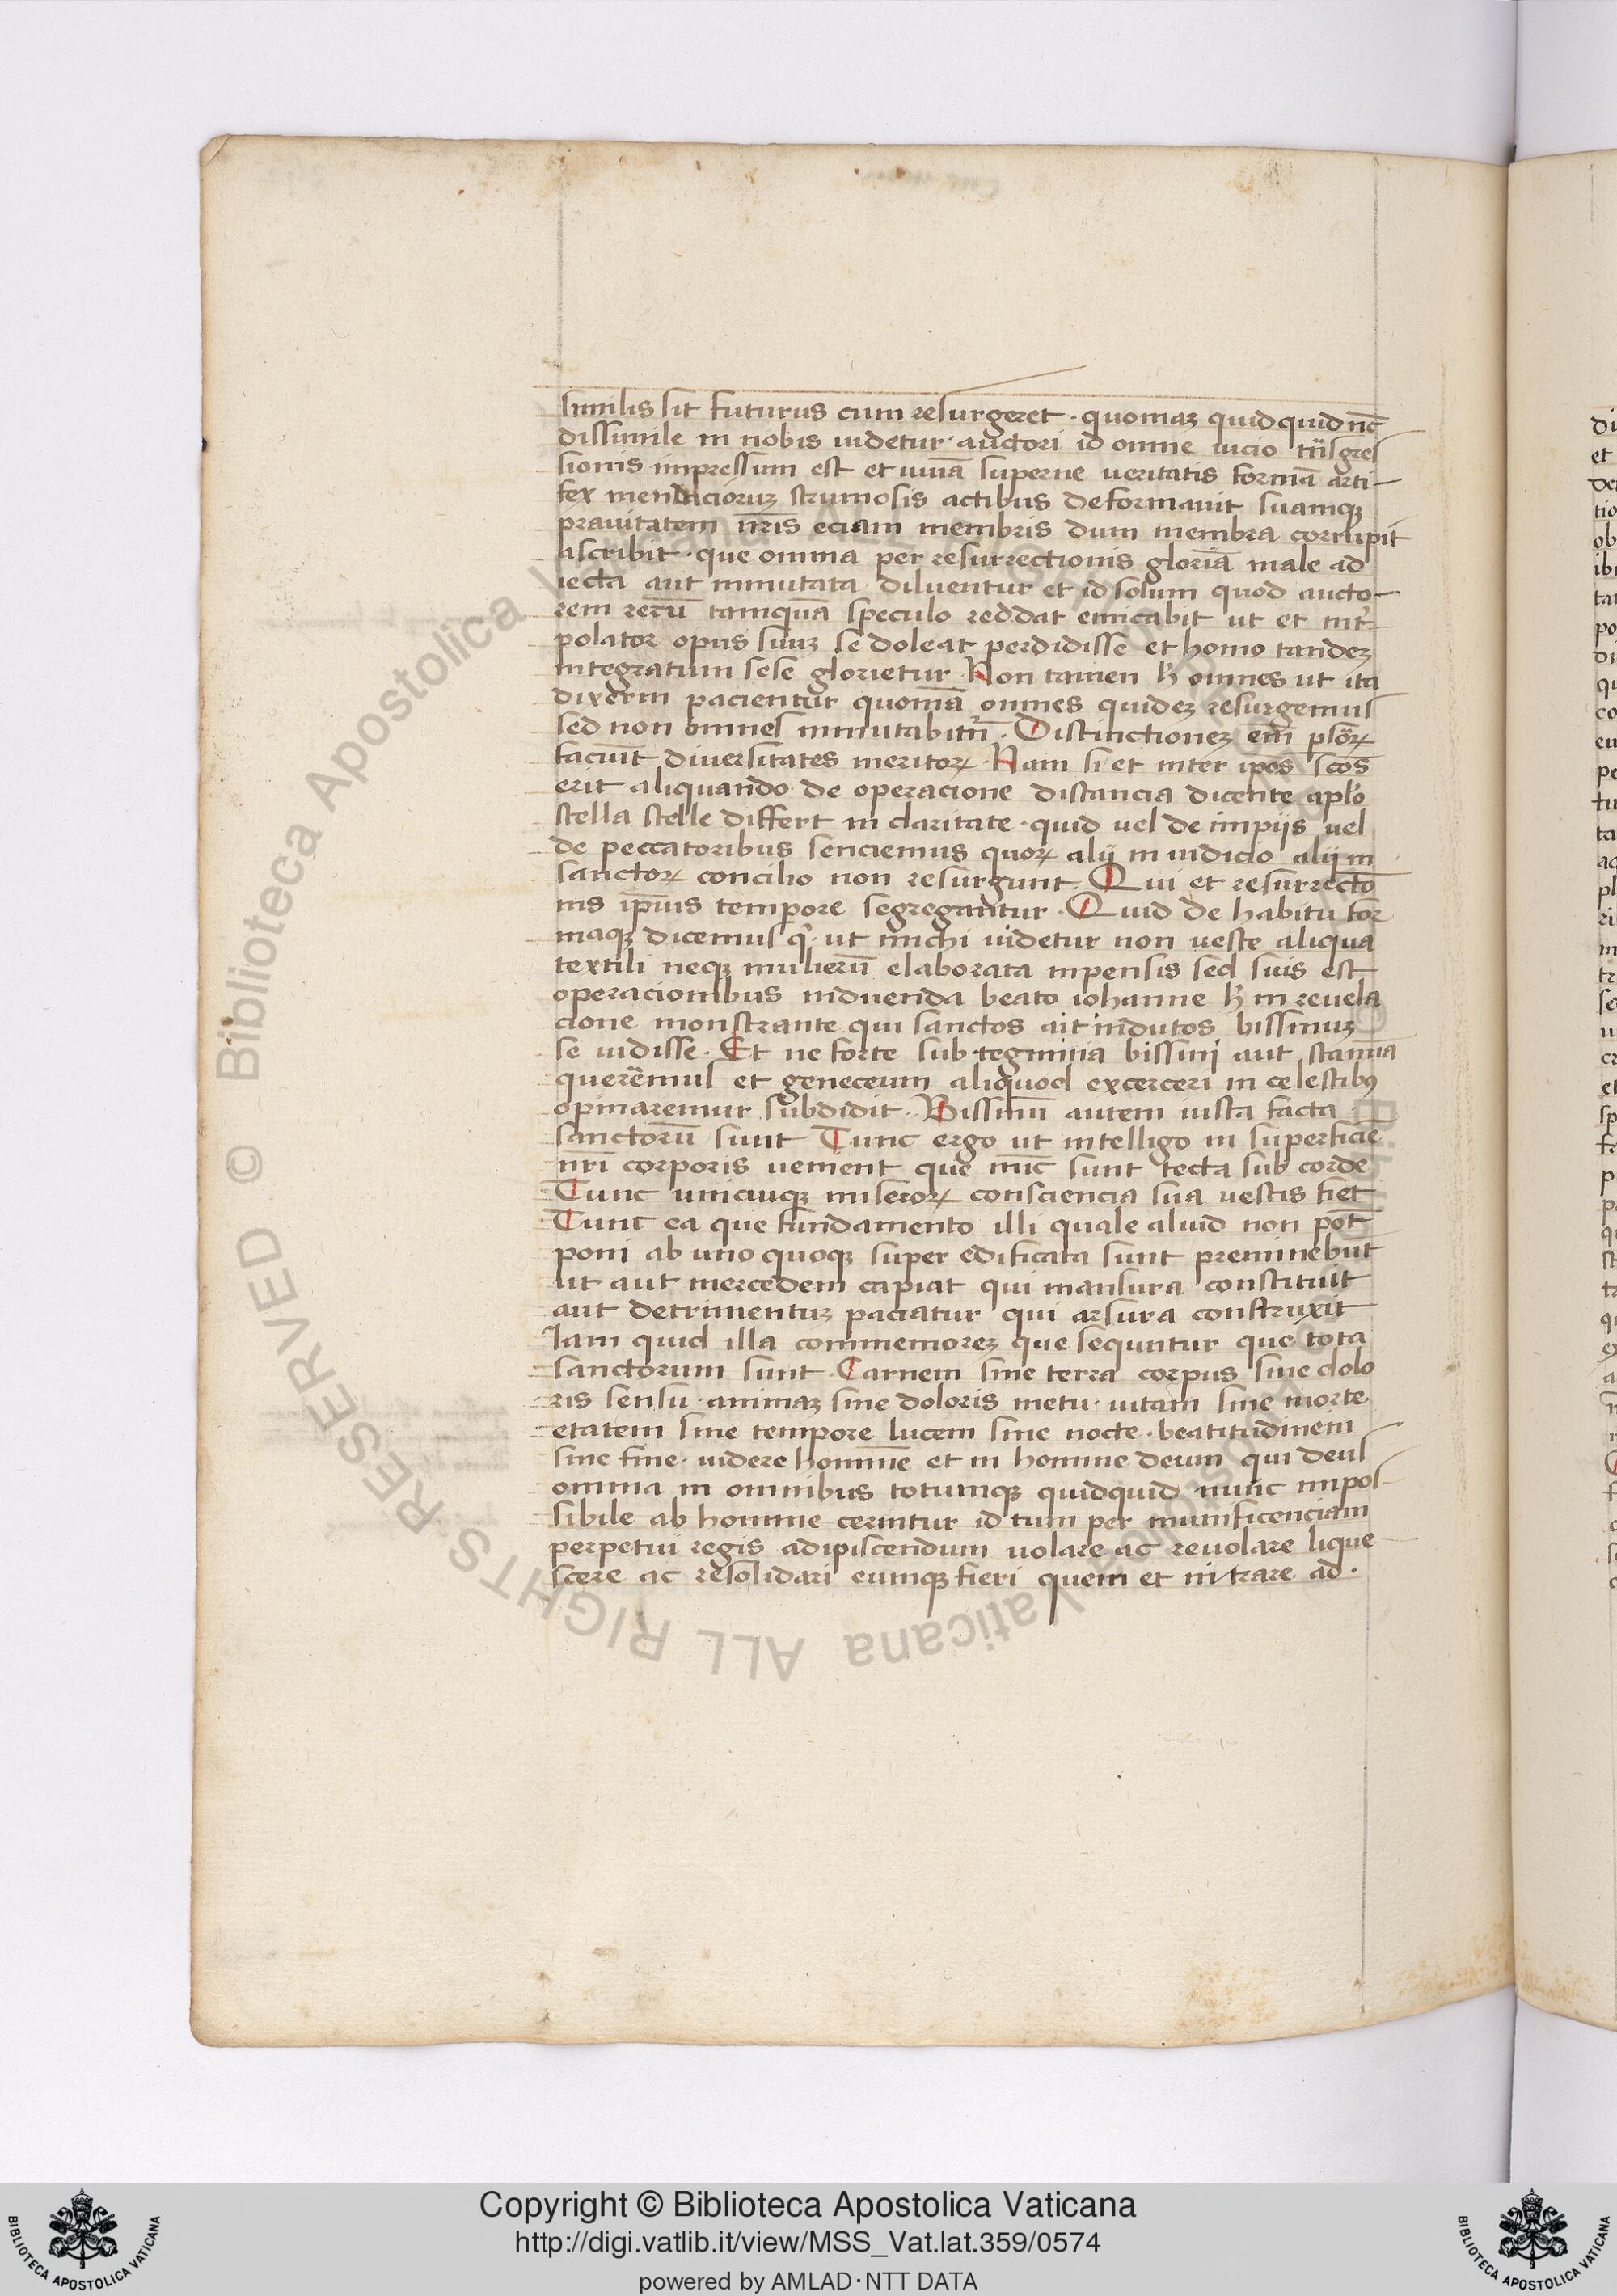 similis sit futurus cum resurgeret · quoniaꝫ quidquid nc̄
dissimile in nobis uidetur · auctori id omne uicio tn̄sgres
sionis impressum est et uiuā superne ueritatis formā arti-
fex mendacioruꝫ strumosis actibus deformauit suamqꝫ
prauitatem nr̄is eciam membris dum membra corrupit
ascribit · que omnia per resurrectionis gloriā male ad
iecta aut inmutata diluentur et id solum quod aucto-
rem rerū tamquā speculo reddat emicabit ut et int̄
polator opus suuꝫ se doleat perdidisse et homo tandeꝫ
integratum sese glorietur · Non tamen h̄ omnes ut ita
dixerim pacientur quoniā omnes quideꝫ resurgemus
sed non omnes inmutabim̄ · Distinctioneꝫ em̄ psōꝝ
faciūt diuersitates meritoꝝ · Nam si et inter ip̄os sc̄os
erit aliquando de operacione distancia dicente aplo
stella stelle differt in claritate · quid uel de impijs uel
de peccatoribus senciemus quoꝝ alij in iudicio alij in
sanctoꝝ concilio non resurgunt · Qui et resurrectō
nis ip̄ius tempore segregantur · Quid de habitu for
maqꝫ dicemus q̄ · ut michi uidetur non ueste aliqua
textili neqꝫ mulierū elaborata inpensis sed suis est
operacionibus induenda beato iohanne h̄ in reuela
cione monstrante qui sanctos ait indutos bissinuꝫ
se uidisse · Et ne forte sub tegmina bissini aut stamina
querēmus et geneceum aliquod excerceri in celestibꝰ
opinaremur subdidit · Bissinū autem iusta facta
sanctorū sunt Tunc ergo ut intelligo in superficie
nr̄i corporis uenient que nūc sunt tecta sub corde
Tunc unicuiqꝫ miseroꝝ consciencia sua uestis fiet
Tunc ea que fundamento illi quale aliud non pōt
poni ab uno quoqꝫ super edificata sunt preminebūt
ut aut mercedem capiat qui mansura constituit
aut detrimentuꝫ paciatur qui arsura construxit
Iam quid illa commemoreꝫ que sequntur que tota
sanctorum sunt · Carnem sine terra corpus sine dolo
ris sensu · animaꝫ sine doloris metu · uitam sine morte
etatem sine tempore lucem sine nocte · beatitudinem
sine fine · uidere hominē et in homine deum qui deus
omnia in omnibus totumqꝫ quidquid nunc inpos-
sibile ab homine cernitur id tum per munificenciam
perpetui regis adipiscendum uolare ac reuolare lique
scere ac resolidari eumqꝫ fieri quem et intrare ad ·
© Biblioteca Apostolica Vaticana ALL RIGHTS RESERVED
Copyright © Biblioteca Apostolica Vaticana
http://digi.vatlib.it/view/MSS_Vat.lat.359/0574
powered by AMLAD·NTT DATA
BIBLIOTECA APOSTOLICA VATICANA
BIBLIOTECA APOSTOLICA VATICANA